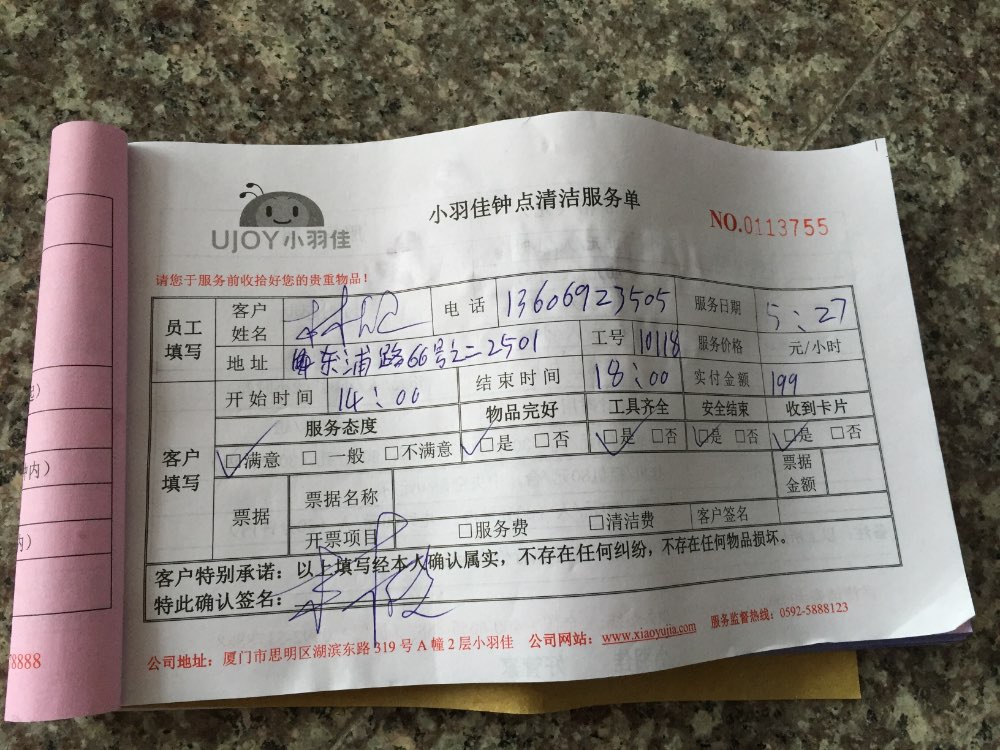 UJOY小羽佳
小羽佳钟点清洁服务单
NO.0113755
请您于服务前收拾好您的贵重物品！
员工填写 客户姓名 林 电话 13606923505 服务日期 5：27
地址 东浦路66号之二2501 工号 10118 服务价格 元/小时
开始时间 14：00 结束时间 18：00 实付金额 199
客户填写 服务态度 物品完好 工具齐全 安全结束 收到卡片
☑满意 □ 一般 □不满意 ☑是 □否 ☑是 □否 ☑是 □否 ☑是 □否
票据 票据名称 票据金额
开票项目 □服务费 □清洁费 客户签名
客户特别承诺：以上填写经本人确认属实，不存在任何纠纷，不存在任何物品损坏。
特此确认签名：
公司地址：厦门市思明区湖滨东路319号A幢2层小羽佳 公司网站：www.xiaoyujia.com 服务监督热线：0592-5888123
内）
）
8888